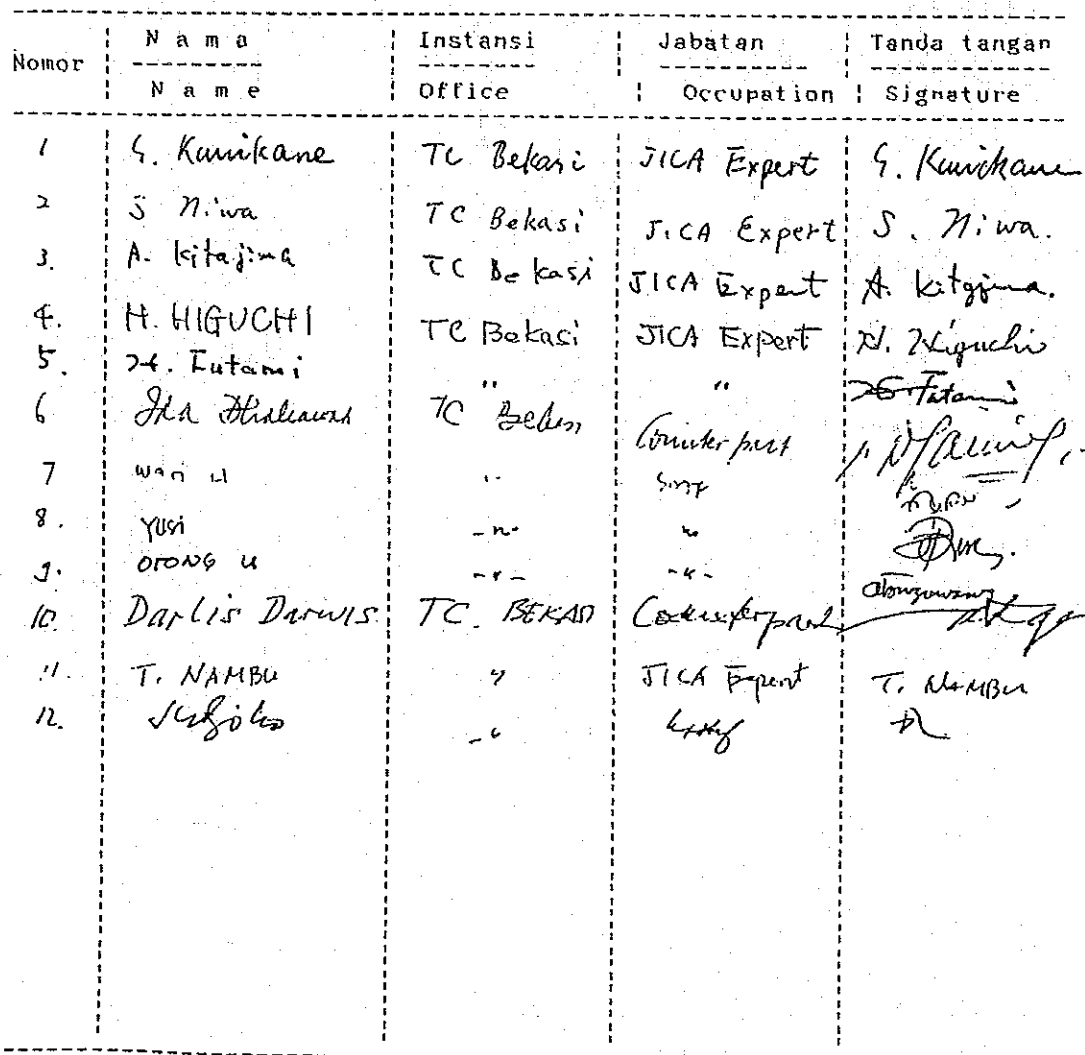 Nomor Nama Instansi Jabatan Tanda tangan
Name Office Occupation Signature
1 S. Kunikane TC Bekasi JICA Expert S. Kunikane
2 S Niwa TC Bekasi JICA Expert S. Niwa.
3. A. Kitajima TC Bekasi JICA Expert A. Kitajima.
4. H. HIGUCHI TC Bekasi JICA Expert H. Higuchi
5. H. Futami " " H. Futami
6 TC Counterpart
7 "
8. Yusi -"- "
9. OTONG -"- -"-
10. Darlis Darwis TC. BEKASI Counterpart
11. T. NAMBU " JICA Expert T. NAMBU
12. -"